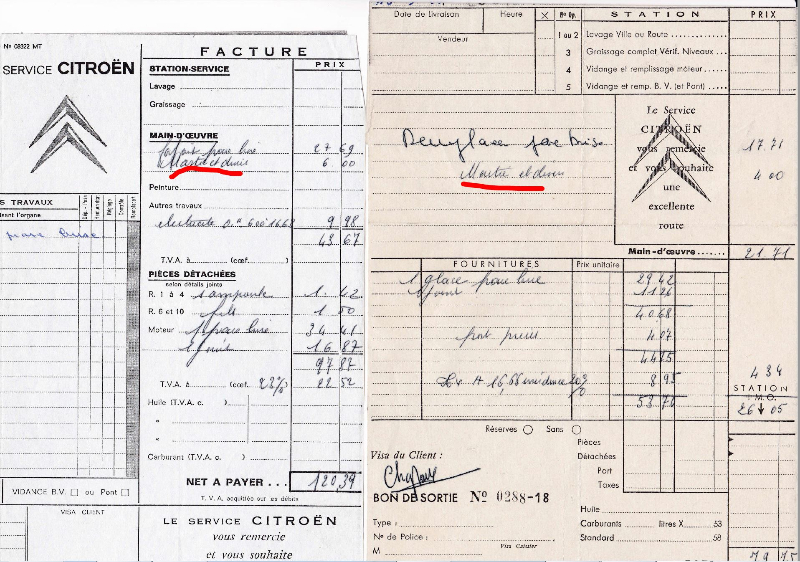 Nº 08322 MT
SERVICE CITROËN
S TRAVAUX
sant l'organe
pare brise
VIDANCE B.V. ou Pont
VISA CLIENT
FACTURE
PRIX
STATION-SERVICE
Lavage
Graissage
MAIN-D'ŒUVRE
pare brise 27 69
Mastic et divers 6 00
Peinture
Autres travaux
9 98
43 67
T.V.A. à (cœf. )
PIÈCES DÉTACHÉES
selon détails joints
R. 1 à 4 1 ampoule 1 42
R. 6 et 10 1 50
Moteur 1 pare brise 34 41
16 87
97 87
T.V.A. à (cœf. 23%) 22 52
Huile (T.V.A. c. )
"
"
Carburant (T.V.A. c. )
NET A PAYER ... 120,39
T. V. A. acquittée sur les débits
LE SERVICE CITROËN
vous remercie
et vous souhaite
Date de Livraison
Heure
Vendeur
X
Nº Op.
STATION
PRIX
1 ou 2 Lavage Ville ou Route
3 Graissage complet Vérif. Niveaux
4 Vidange et remplissage moteur
5 Vidange et remp. B. V. (et Pont)
Remplacer pare brise 17.71
Mastic et divers 4 00
Le Service
CITROËN
vous remercie
et vous souhaite
une
excellente
route
Main-d'œuvre 21 71
FOURNITURES
Prix unitaire
1 glace pare brise 29 42
1 joint 11 26
40 68
4 07
44 75
16,66 incidence 20% 8 95
53 70
4 34
STATION
T.M.O.
26 05
Réserves Sans
Pièces
Détachées
Port
Taxes
Visa du Client :
BON DE SORTIE Nº 0288-18
Type :
Nº de Police :
M
Visa Caissier
Huile
Carburants litres X 53
Standard 58
79 75